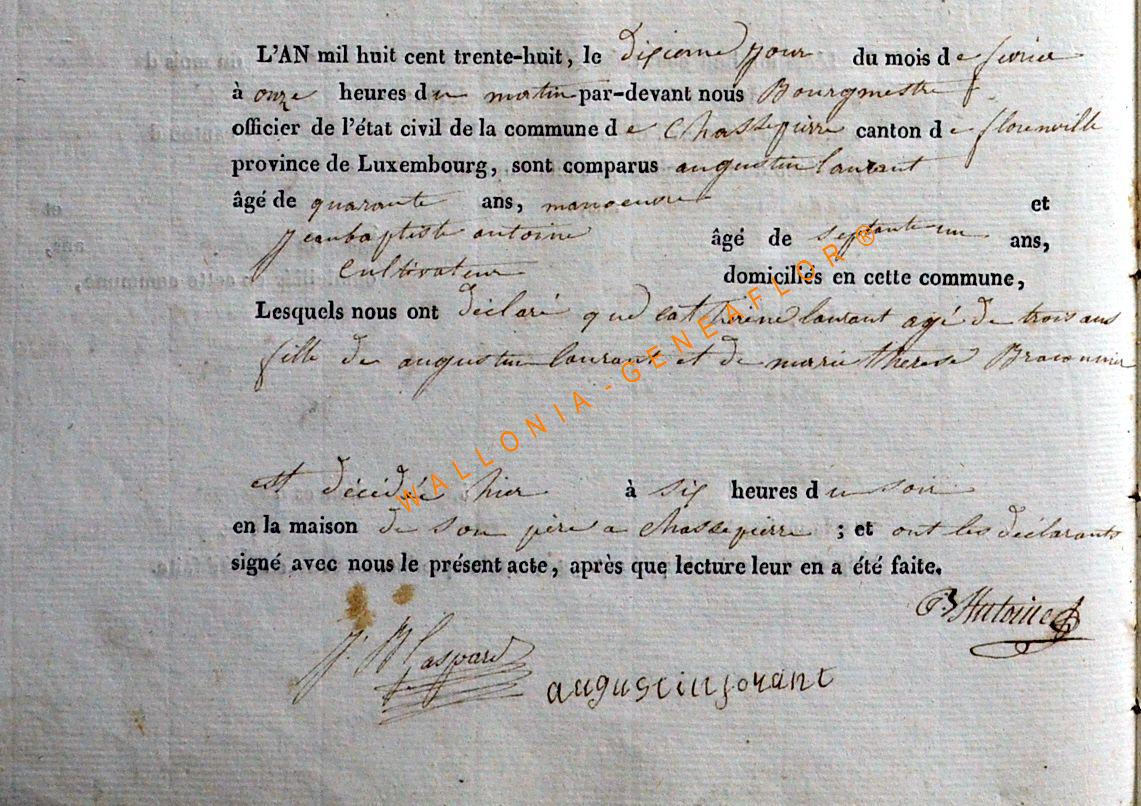 L'AN mil huit cent trente-huit, le dixieme jour du mois de fevrier
à onze heures du matin par-devant nous Bourgmestre
officier de l'état civil de la commune de Chassepierre canton de florenville
province de Luxembourg, sont comparus augustin laurant
âgé de quarante ans, manoeuvre et
jeanbaptiste antoine âgé de septante un ans,
cultivateur domiciliés en cette commune,
Lesquels nous ont déclaré que catherine laurant agé de trois ans
fille de augustin laurant et de marie therese Braconnier
est décédé hier à six heures du soir
en la maison de son père a chassepierre ; et ont les déclarants
signé avec nous le présent acte, après que lecture leur en a été faite.
JB Antoine
J. B Gaspard
augustin lorant
WALLONIA - GENEAFLOR ®